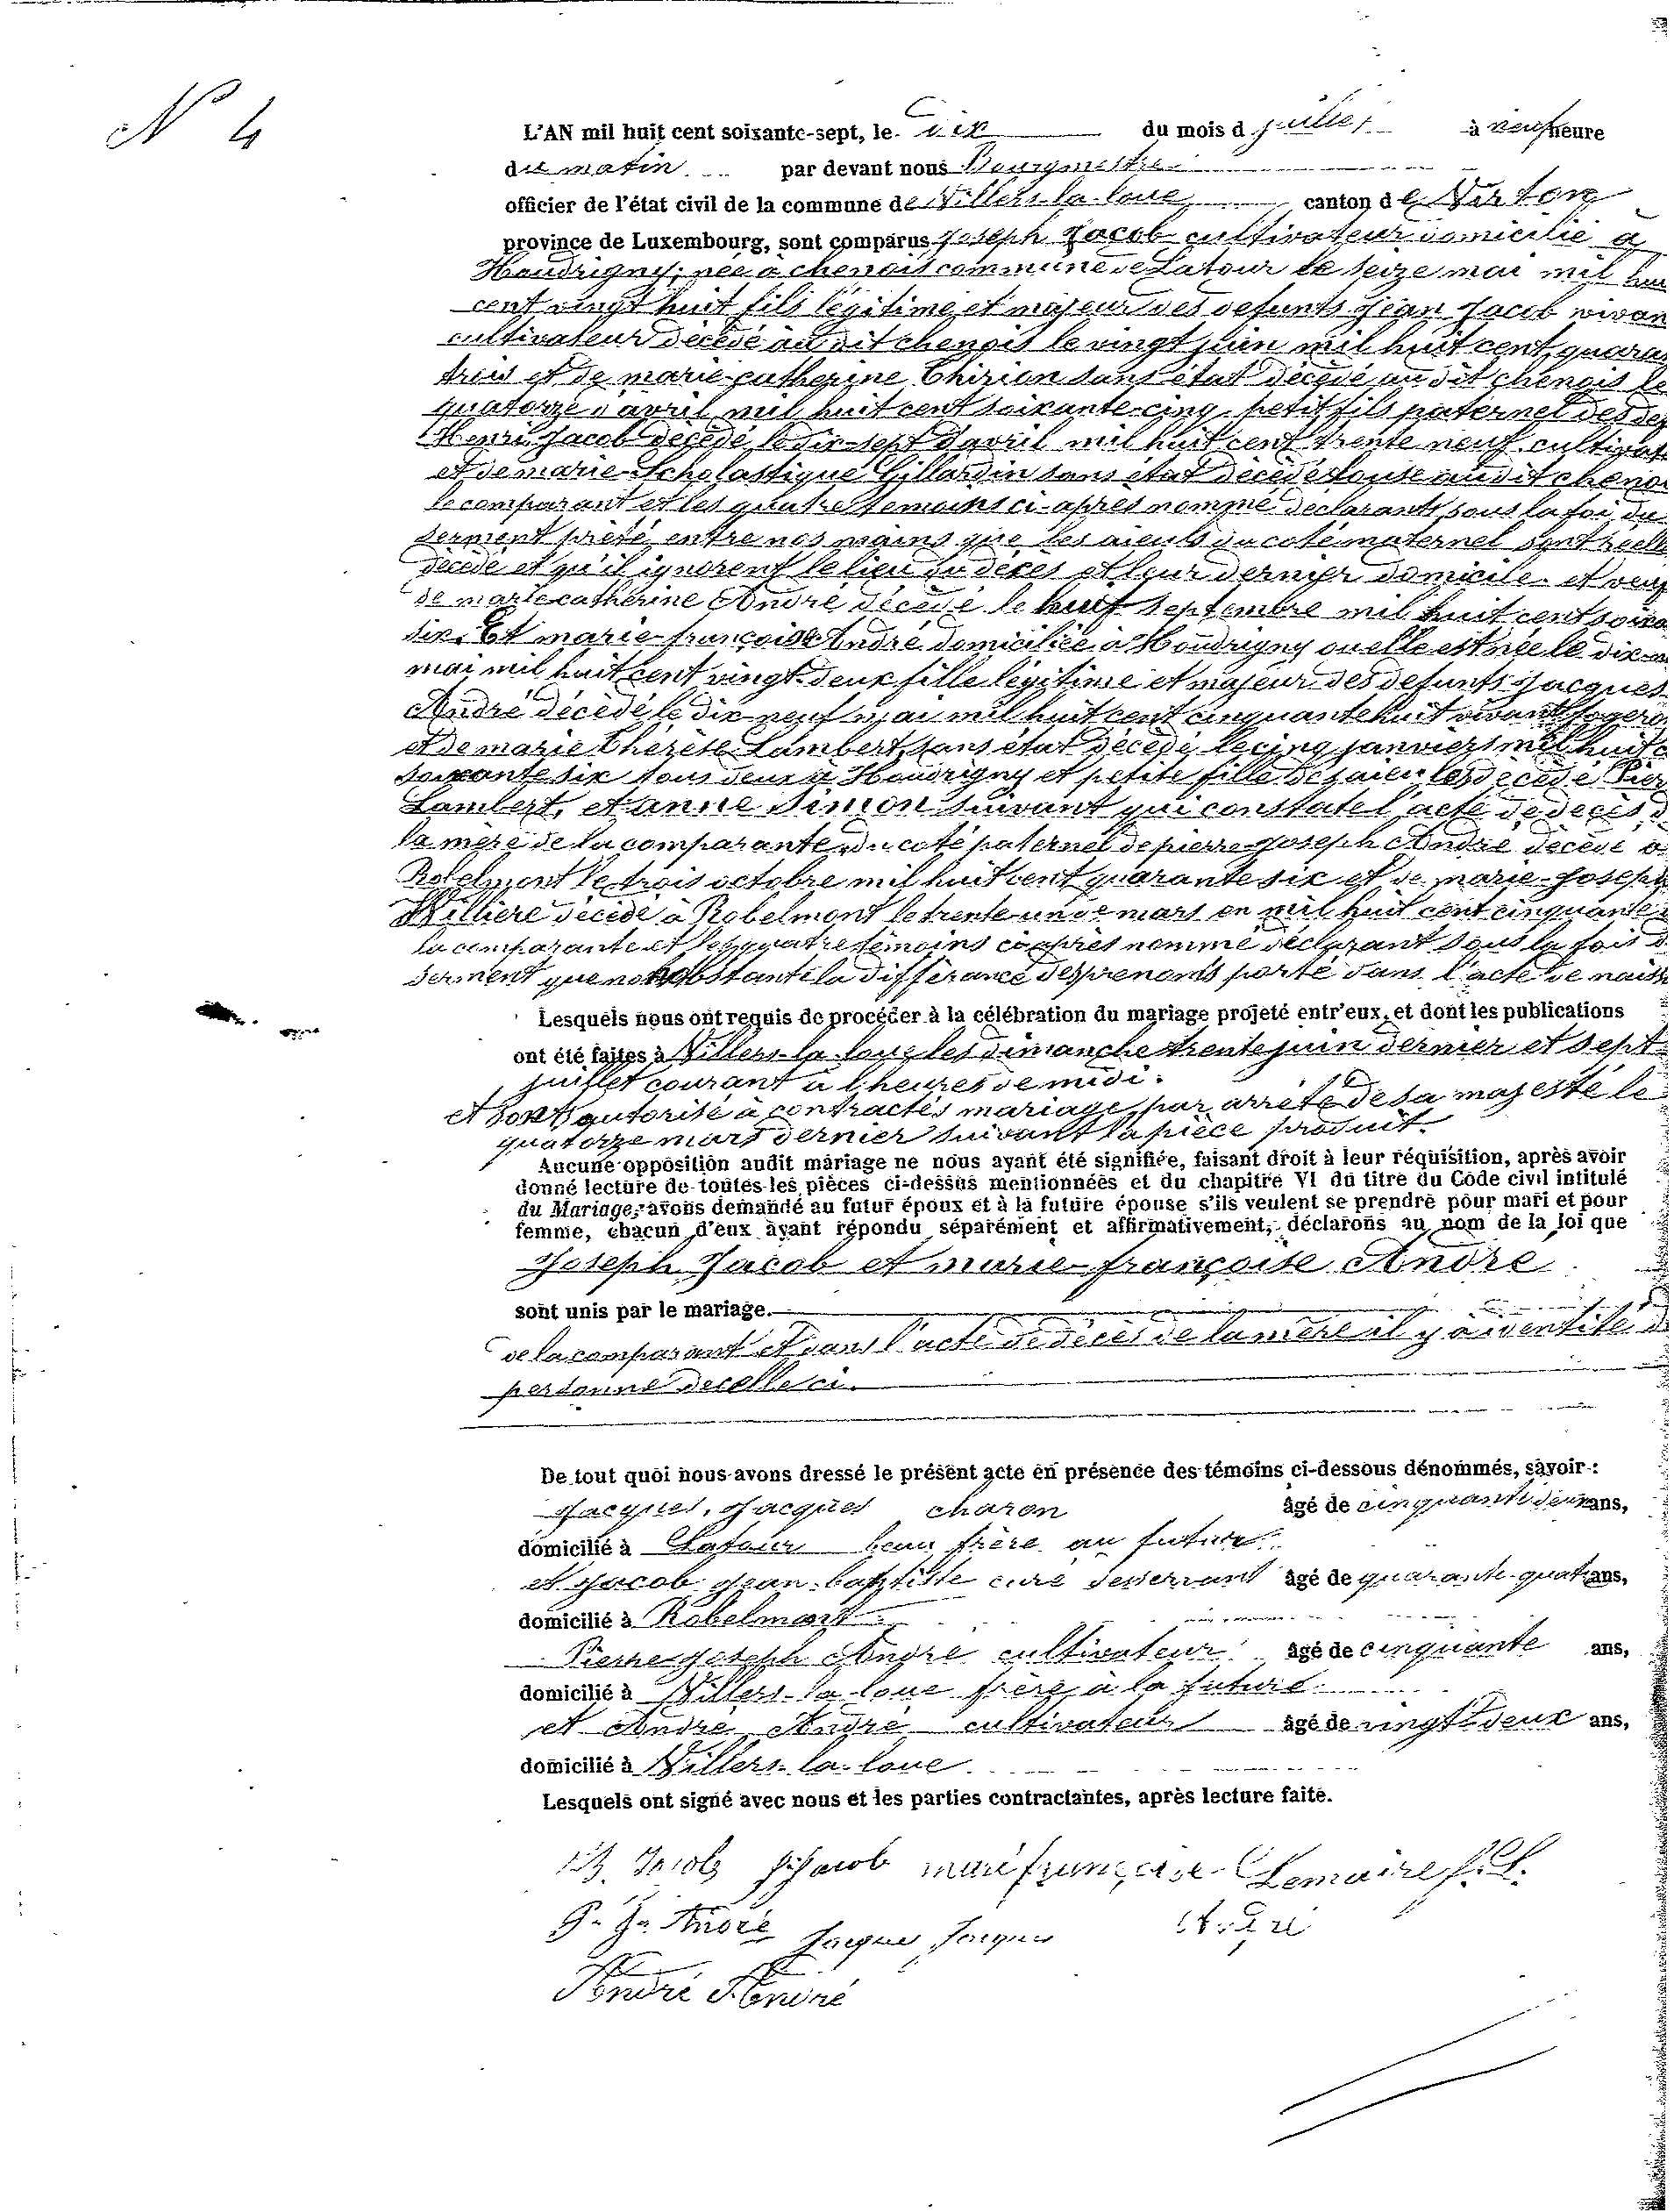 N 4
L'AN mil huit cent soixante-sept, le dix du mois d juillet à neuf heure
du matin par devant nous Bourgmestre
officier de l'état civil de la commune de Villers-la-loue canton de Virton
province de Luxembourg, sont comparus Joseph Jacob cultivateur domicilié à
Houdrigny, née à chenois commune de Latour le seize mai mil huit
cent vingt huit fils légitime et majeur des defunts Jean Jacob vivan
cultivateur décédé au dit chenois le vingt juin mil huit cent quaran
trois et de marie-catherine Thirion sans état décédé au dit chenois le
quatorze d'avril mil huit cent soixante-cinq, petit fils paternel des
Henri Jacob décédé le dix-sept d'avril mil huit cent trente neuf cultivat
et de marie-Scholastique Gillardin sans état décédés audit cheno
le comparant et les quatre temoins ci-après nommé declarants sous la foi du
serment prété entre nos mains que les aieuls du coté maternel sont réelle
décédé et qu'il ignorent le lieu du décès et leur dernier domicile. et veuf
de marie catherine André décédé le huit septembre mil huit cent soixa
six. Et marie-françoise André domiciliée à Houdrigny ou elle est née le dix
mai mil huit cent vingt-deux fille légitime et majeur des defunts Jacques
André décédé le dix-neuf mai mil huit cent cinquante huit vivant
et de marie Thérèse Lambert, sans état décédé le cinq janviers mil huit c
soixante six tous deux à Houdrigny et petite fille des aieules décédé Pier
Lambert, et anne Simon suivant qui constate l'acte de décès d
la mère de la comparante, du coté paternel de pierre-joseph André décédé à
Robelmont le trois octobre mil huit cent quarante six et de marie-joseph
Willière décédé à Robelmont le trente-un de mars en mil huit cent cinquante
la comparante et les quatre témoins ci après nommé déclarant sous la fois d
serment que nonobstante la différance des prenoms porté dans l'acte de naiss
Lesquels nous ont requis de procéder à la célébration du mariage projeté entr'eux, et dont les publications
ont été faites à Villers-la-loue les dimanche trente juin dernier et sept
juillet courant à l heures de midi.
et sont autorisé à contractés mariage par arrété de sa majesté le
quatorze mars dernier suivant la pièce produit.
Aucune opposition audit mariage ne nous ayant été signifiée, faisant droit à leur réquisition, après avoir
donné lecture de toutes les pièces ci-dessus mentionnées et du chapitre VI du titre du Code civil intitulé
du Mariage, avons demandé au futur époux et à la future épouse s'ils veulent se prendre pour mari et pour
femme, chacun d'eux ayant répondu séparément et affirmativement, déclarons au nom de la loi que
Joseph Jacob et marie-françoise André
sont unis par le mariage.
de la comparant et dans l'acte de décès de la mère il y a identité d
personne de celle ci.
De tout quoi nous avons dressé le présent acte en présence des témoins ci-dessous dénommés, savoir :
Jacques, Jacques charon âgé de cinquante deux ans,
domicilié à Latour beau frère au future
et Jacob Jean-baptiste curé desservant âgé de quarante-quatre ans,
domicilié à Robelmont
Pierre-joseph André cultivateur âgé de cinquante ans,
domicilié à Villers-la-loue frère à la future
et André André cultivateur âgé de vingt-deux ans,
domicilié à Villers-la-loue
Lesquels ont signé avec nous et les parties contractantes, après lecture faite.
Jacob J. Jacob marie françoise Lemaire
P. J. André Jacques Jacques André
André André